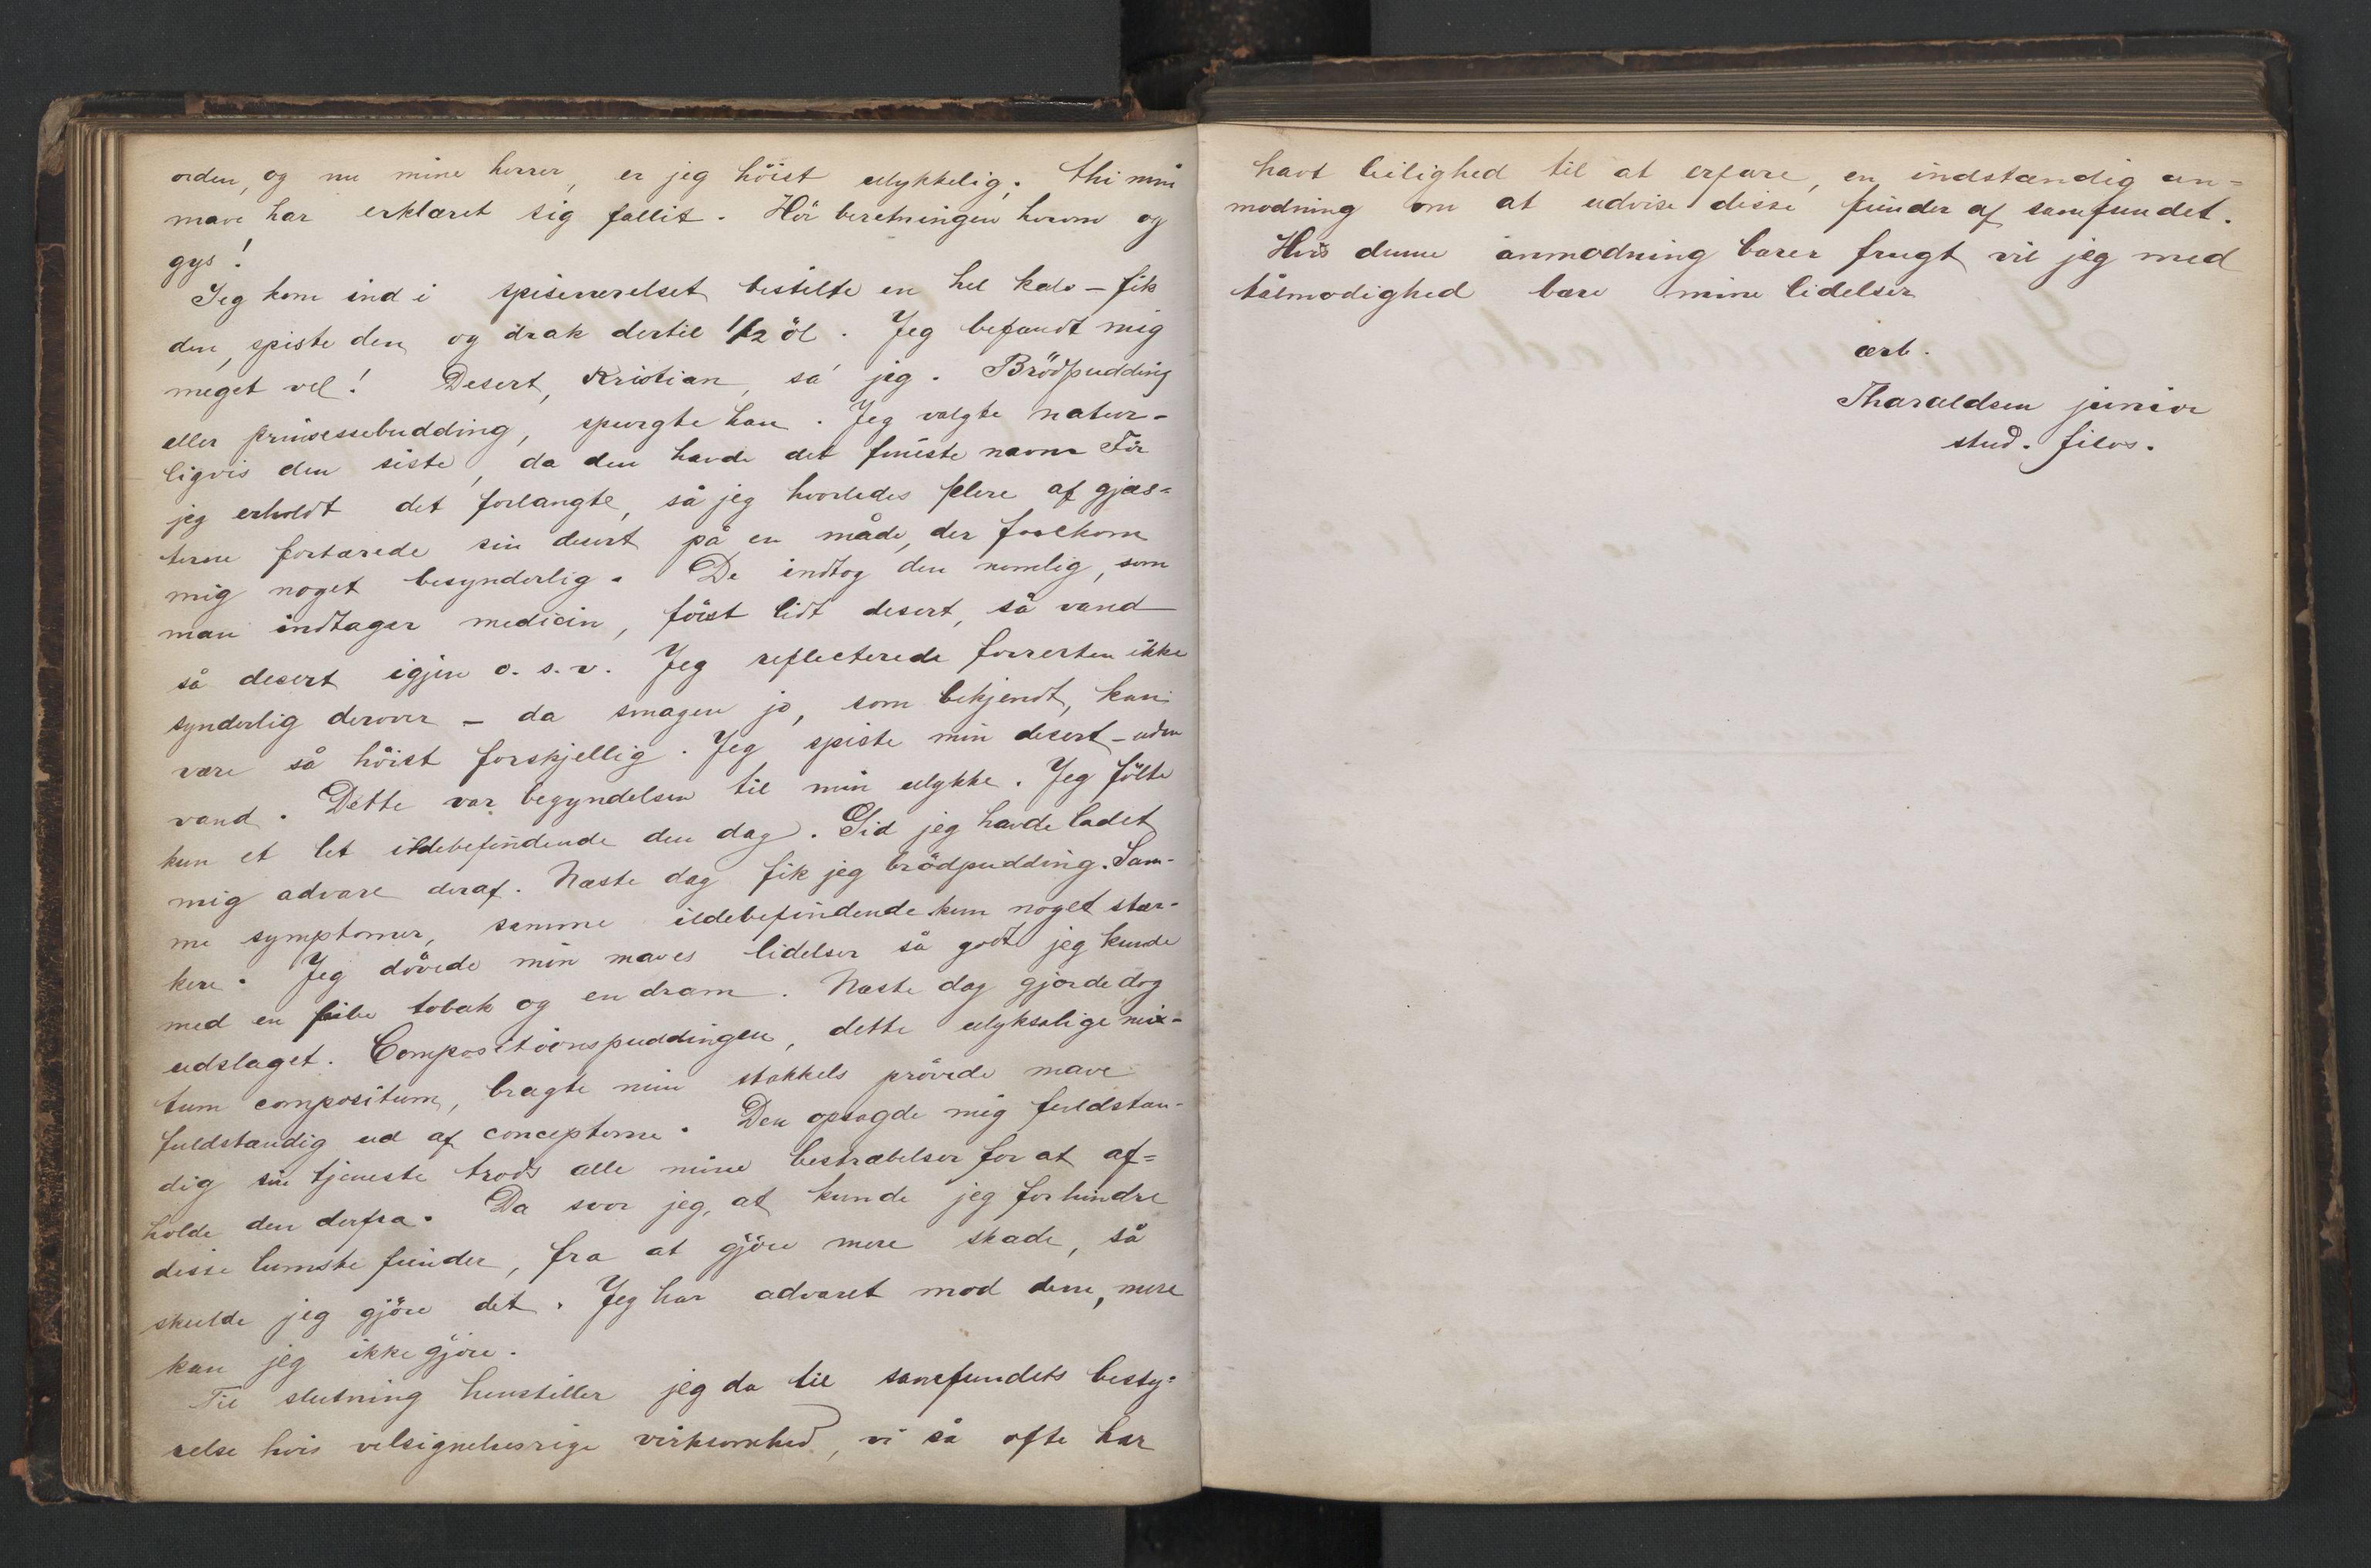 orden, og nu mine herrer, er jeg höist ulykkelig; thi min
mave har erklæret sig fallit. Hör beretningen herom og
gys!
Jeg kom ind i spiseværelset bestilte en hel kalv – fik
den, spiste den, og drak dertil 1/2 öl. Jeg befandt mig
meget vel! Desert, Kristian, sa' jeg. Brödpudding
eller prinsessebudding, spurgte han. Jeg valgte natur-
ligvis den siste, da den havde det fineste navn. För
jeg erholdt det forlangte, så jeg hvorledes flere af gjæs-
terne fortærede sin desert på en måde, der forekom
mig noget besynderlig. De indtog den nemlig, som
man indtager medicin, först lidt desert, så vand
så desert igjen o. s. v. Jeg reflecterede forresten ikke
synderlig derover – da smagen jo, som bekjendt, kan
være så höist forskjellig. Jeg spiste min desert – uden
vand. Dette var begyndelsen til min ulykke. Jeg fölte
kun et let ildebefindende den dag. Gid jeg havde ladet
mig advare deraf. Næste dag fik jeg brödpudding. Sam-
me symptomer, samme ildebefindende kun noget stær-
kere. Jeg dövede min maves lidelser så godt jeg kunde
med en pibe tobak og en dram. Næste dag gjorde dog
udslaget. Compositionspuddingen, dette ulyksalige mix-
tum compositum, bragte min stakkels prövede mave
fuldstændig ud af concepterne. Den opsagde mig fuldstæn-
dig sin tjeneste trods alle mine bestræbelser for at af=
holde den derfra. Da svor jeg, at kunde jeg forhindre
disse lumske fiender, fra at gjöre mere skade, så
skulde jeg gjöre det. Jeg har advaret mod dem, mere
kan jeg ikke gjöre.
Til slutning henstiller jeg da til samfundets besty=
relse hvis velsignelsesrige virksomhed, vi så ofte har
havt leilighed til at erfare, en indstændig an=
modning om at udvise disse fiender af samfundet.
Hvis denne anmodning bærer frugt vil jeg med
tålmodighed bære mine lidelser
ærb.
Tharaldsen junior
stud. filos.